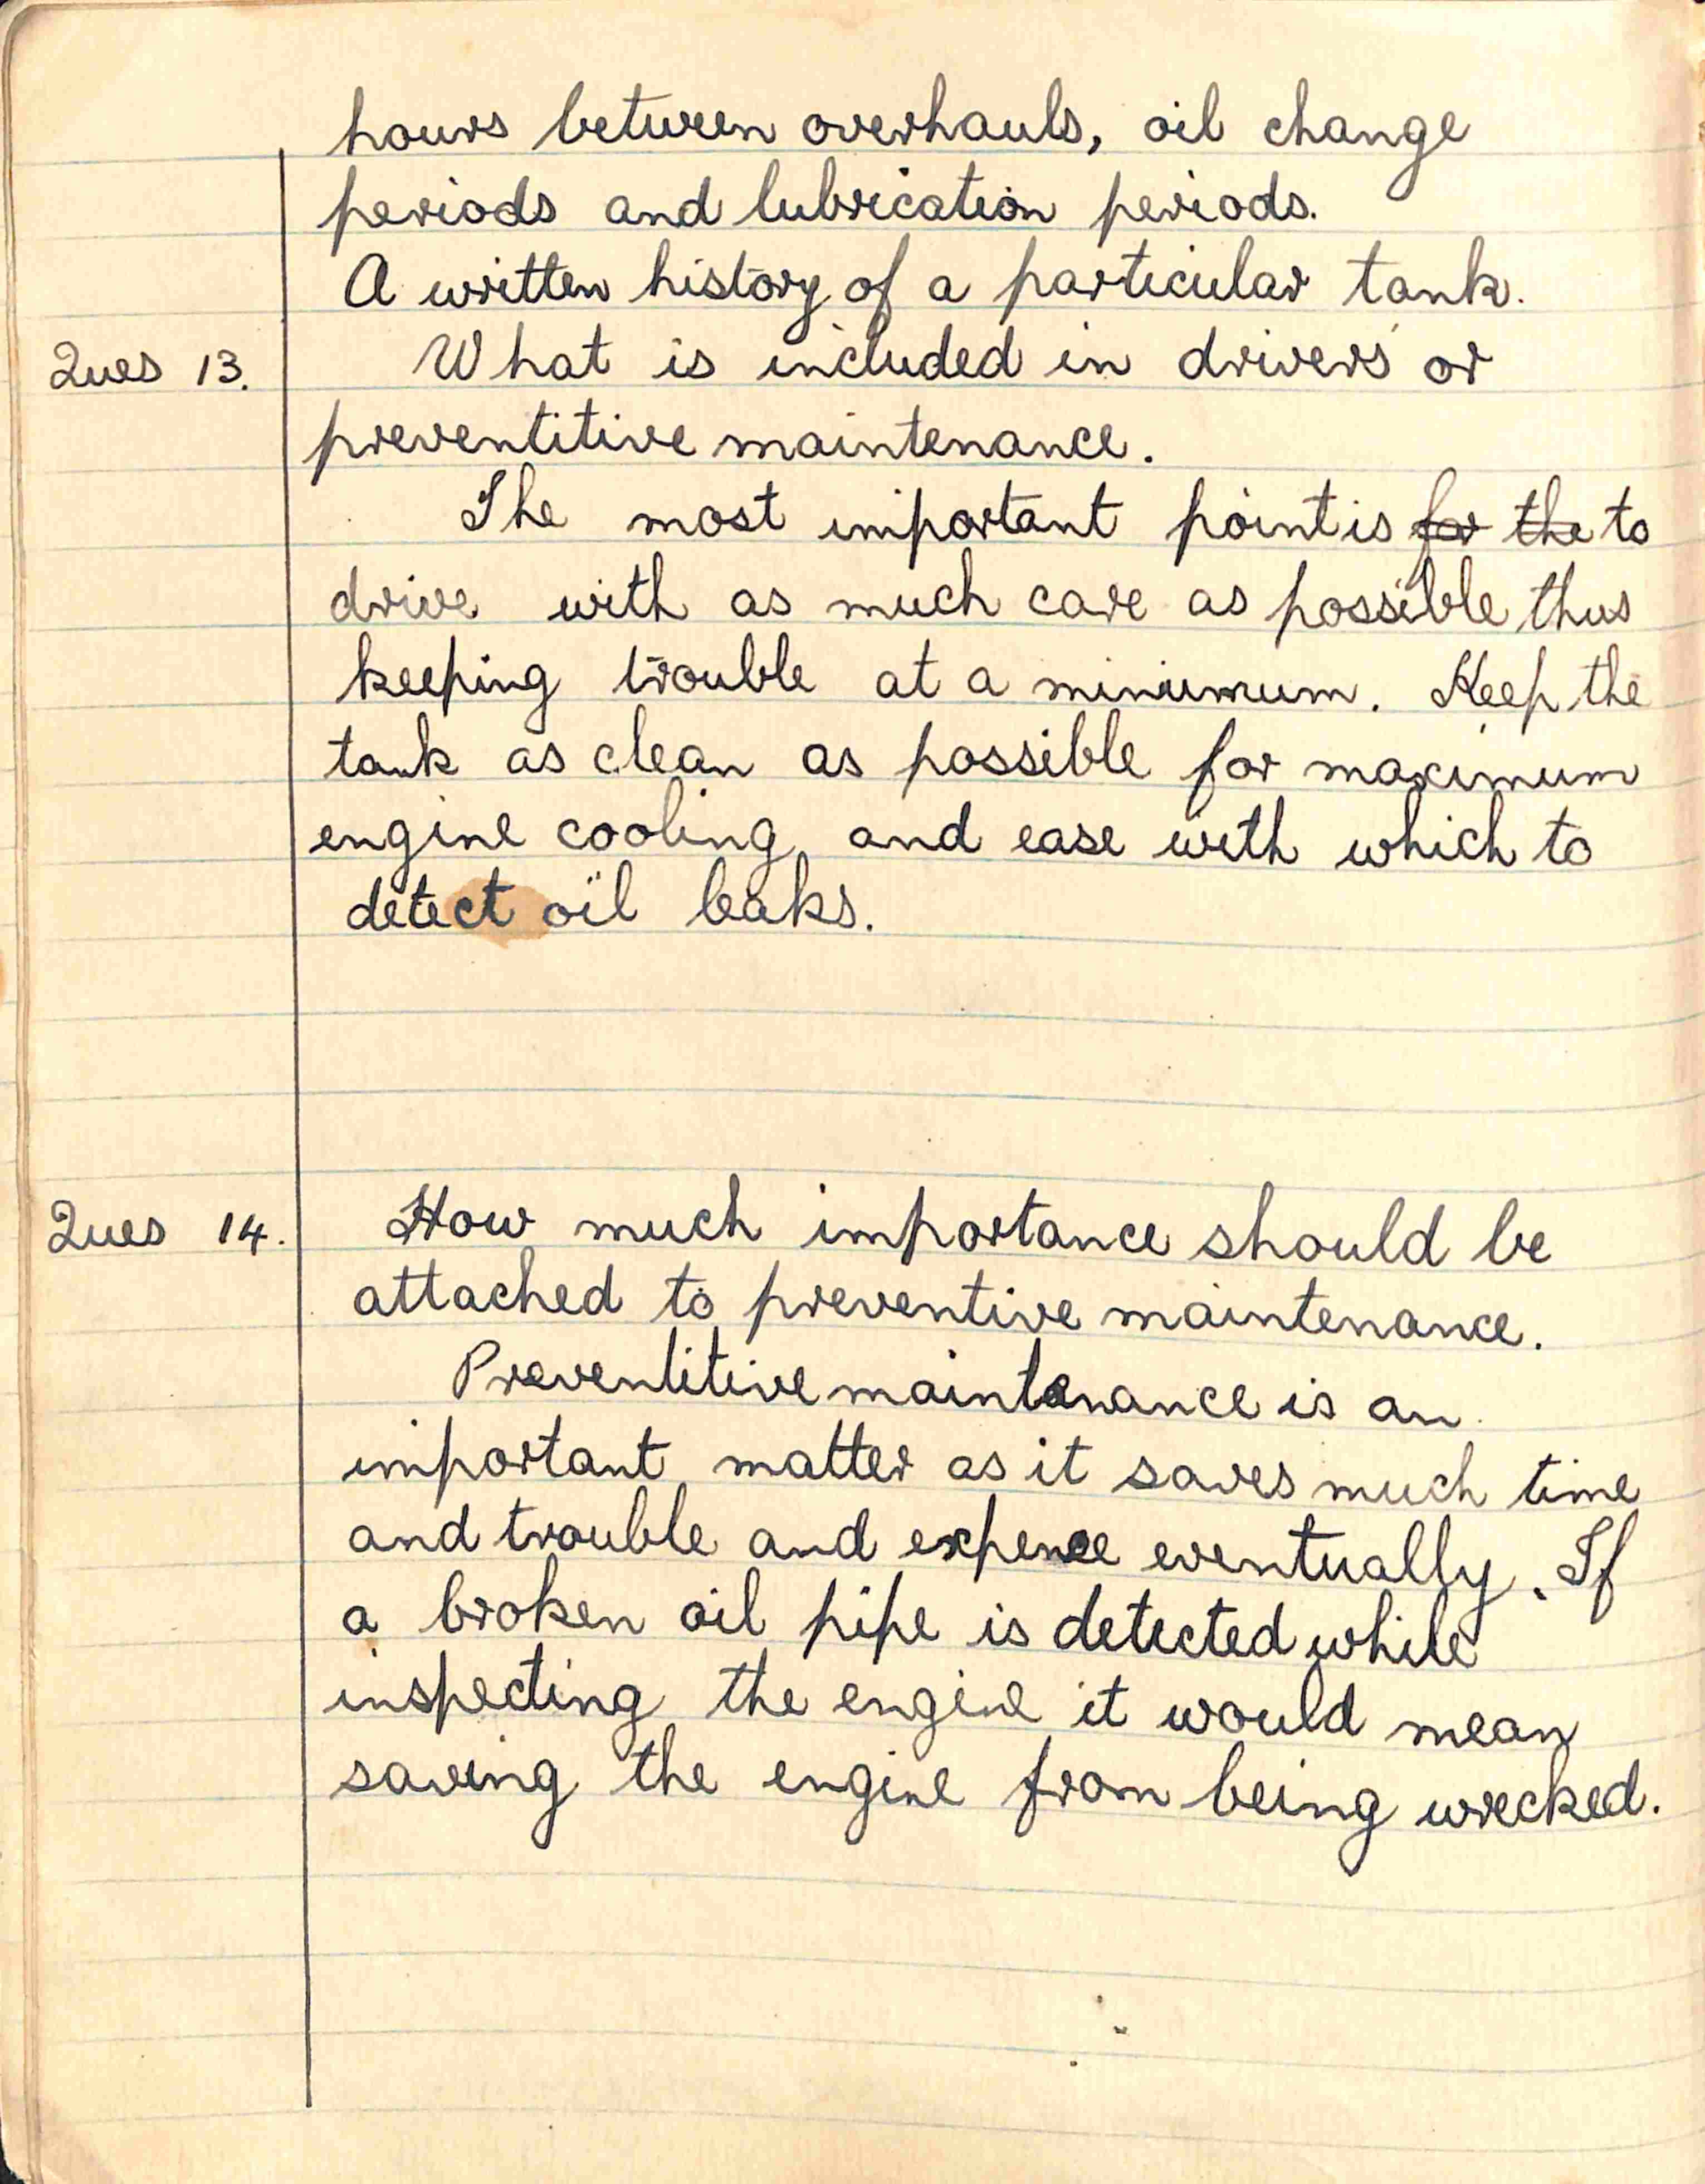 hours between overhauls, oil change
periods and lubrication periods.
A written history of a particular tank.
Ques 13. What is included in drivers' or
preventitive maintenance.
The most important point is ~~for the~~ to
drive with as much care as possible thus
keeping trouble at a minimum. Keep the
tank as clean as possible for maximum
engine cooling and ease with which to
detect oil leaks.
Ques 14. How much importance should be
attached to preventive maintenance.
Preventitive maintenance is an
important matter as it saves much time
and trouble and expence eventually. If
a broken oil pipe is detected while
inspecting the engine it would mean
saving the engine from being wrecked.